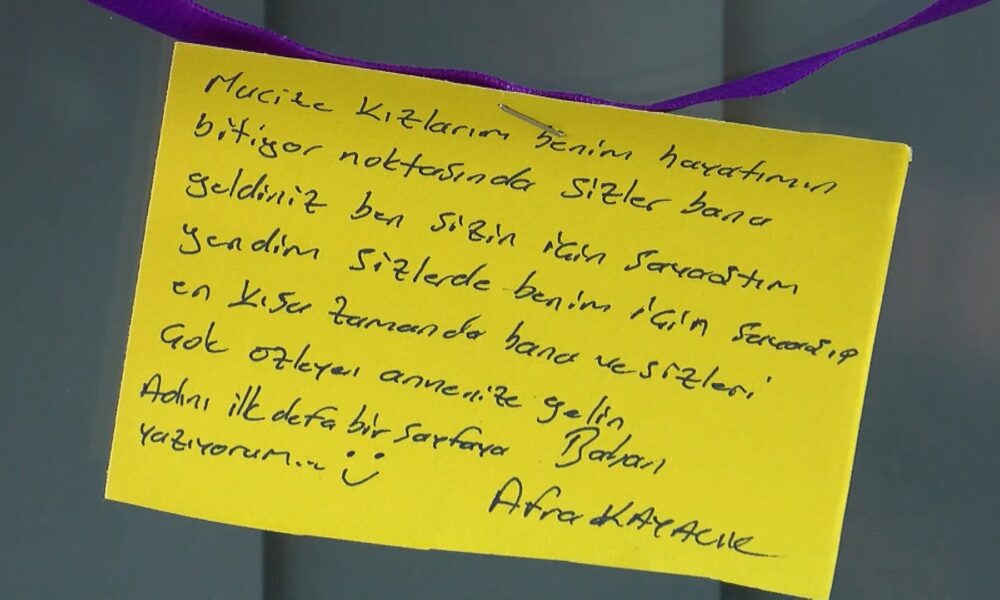 Mucize kızlarım benim hayatımın
bitiyor noktasında sizler bana
geldiniz ben sizin için savaştım
yendim sizlerde benim için savaşıp
en kısa zamanda bana ve sizleri
çok özleyen annenize gelin
Adını ilk defa bir sayfaya Babanı
yazıyorum... :)
Afra KAYACIK